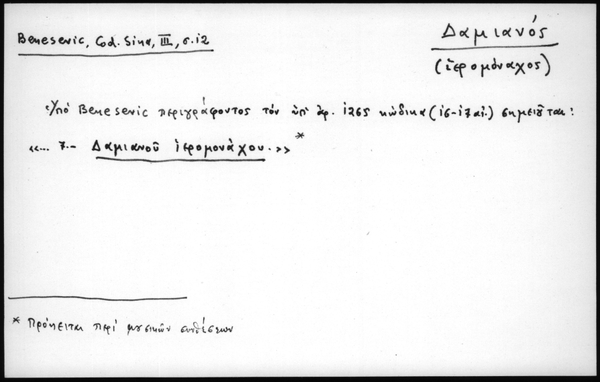 Benesevic, Cod. Sina, III, σ.12
Δαμιανός
(ἱερομόναχος)
Ὑπό Benesevic περιγράφοντος τόν ὑπ' ἀρ. 1265 κώδικα (16-17 αἰ.) σημειοῦται:
«... 7.- Δαμιανοῦ ἱερομονάχου.»*
* Πρόκειται περί μουσικῶν συνθέσεων